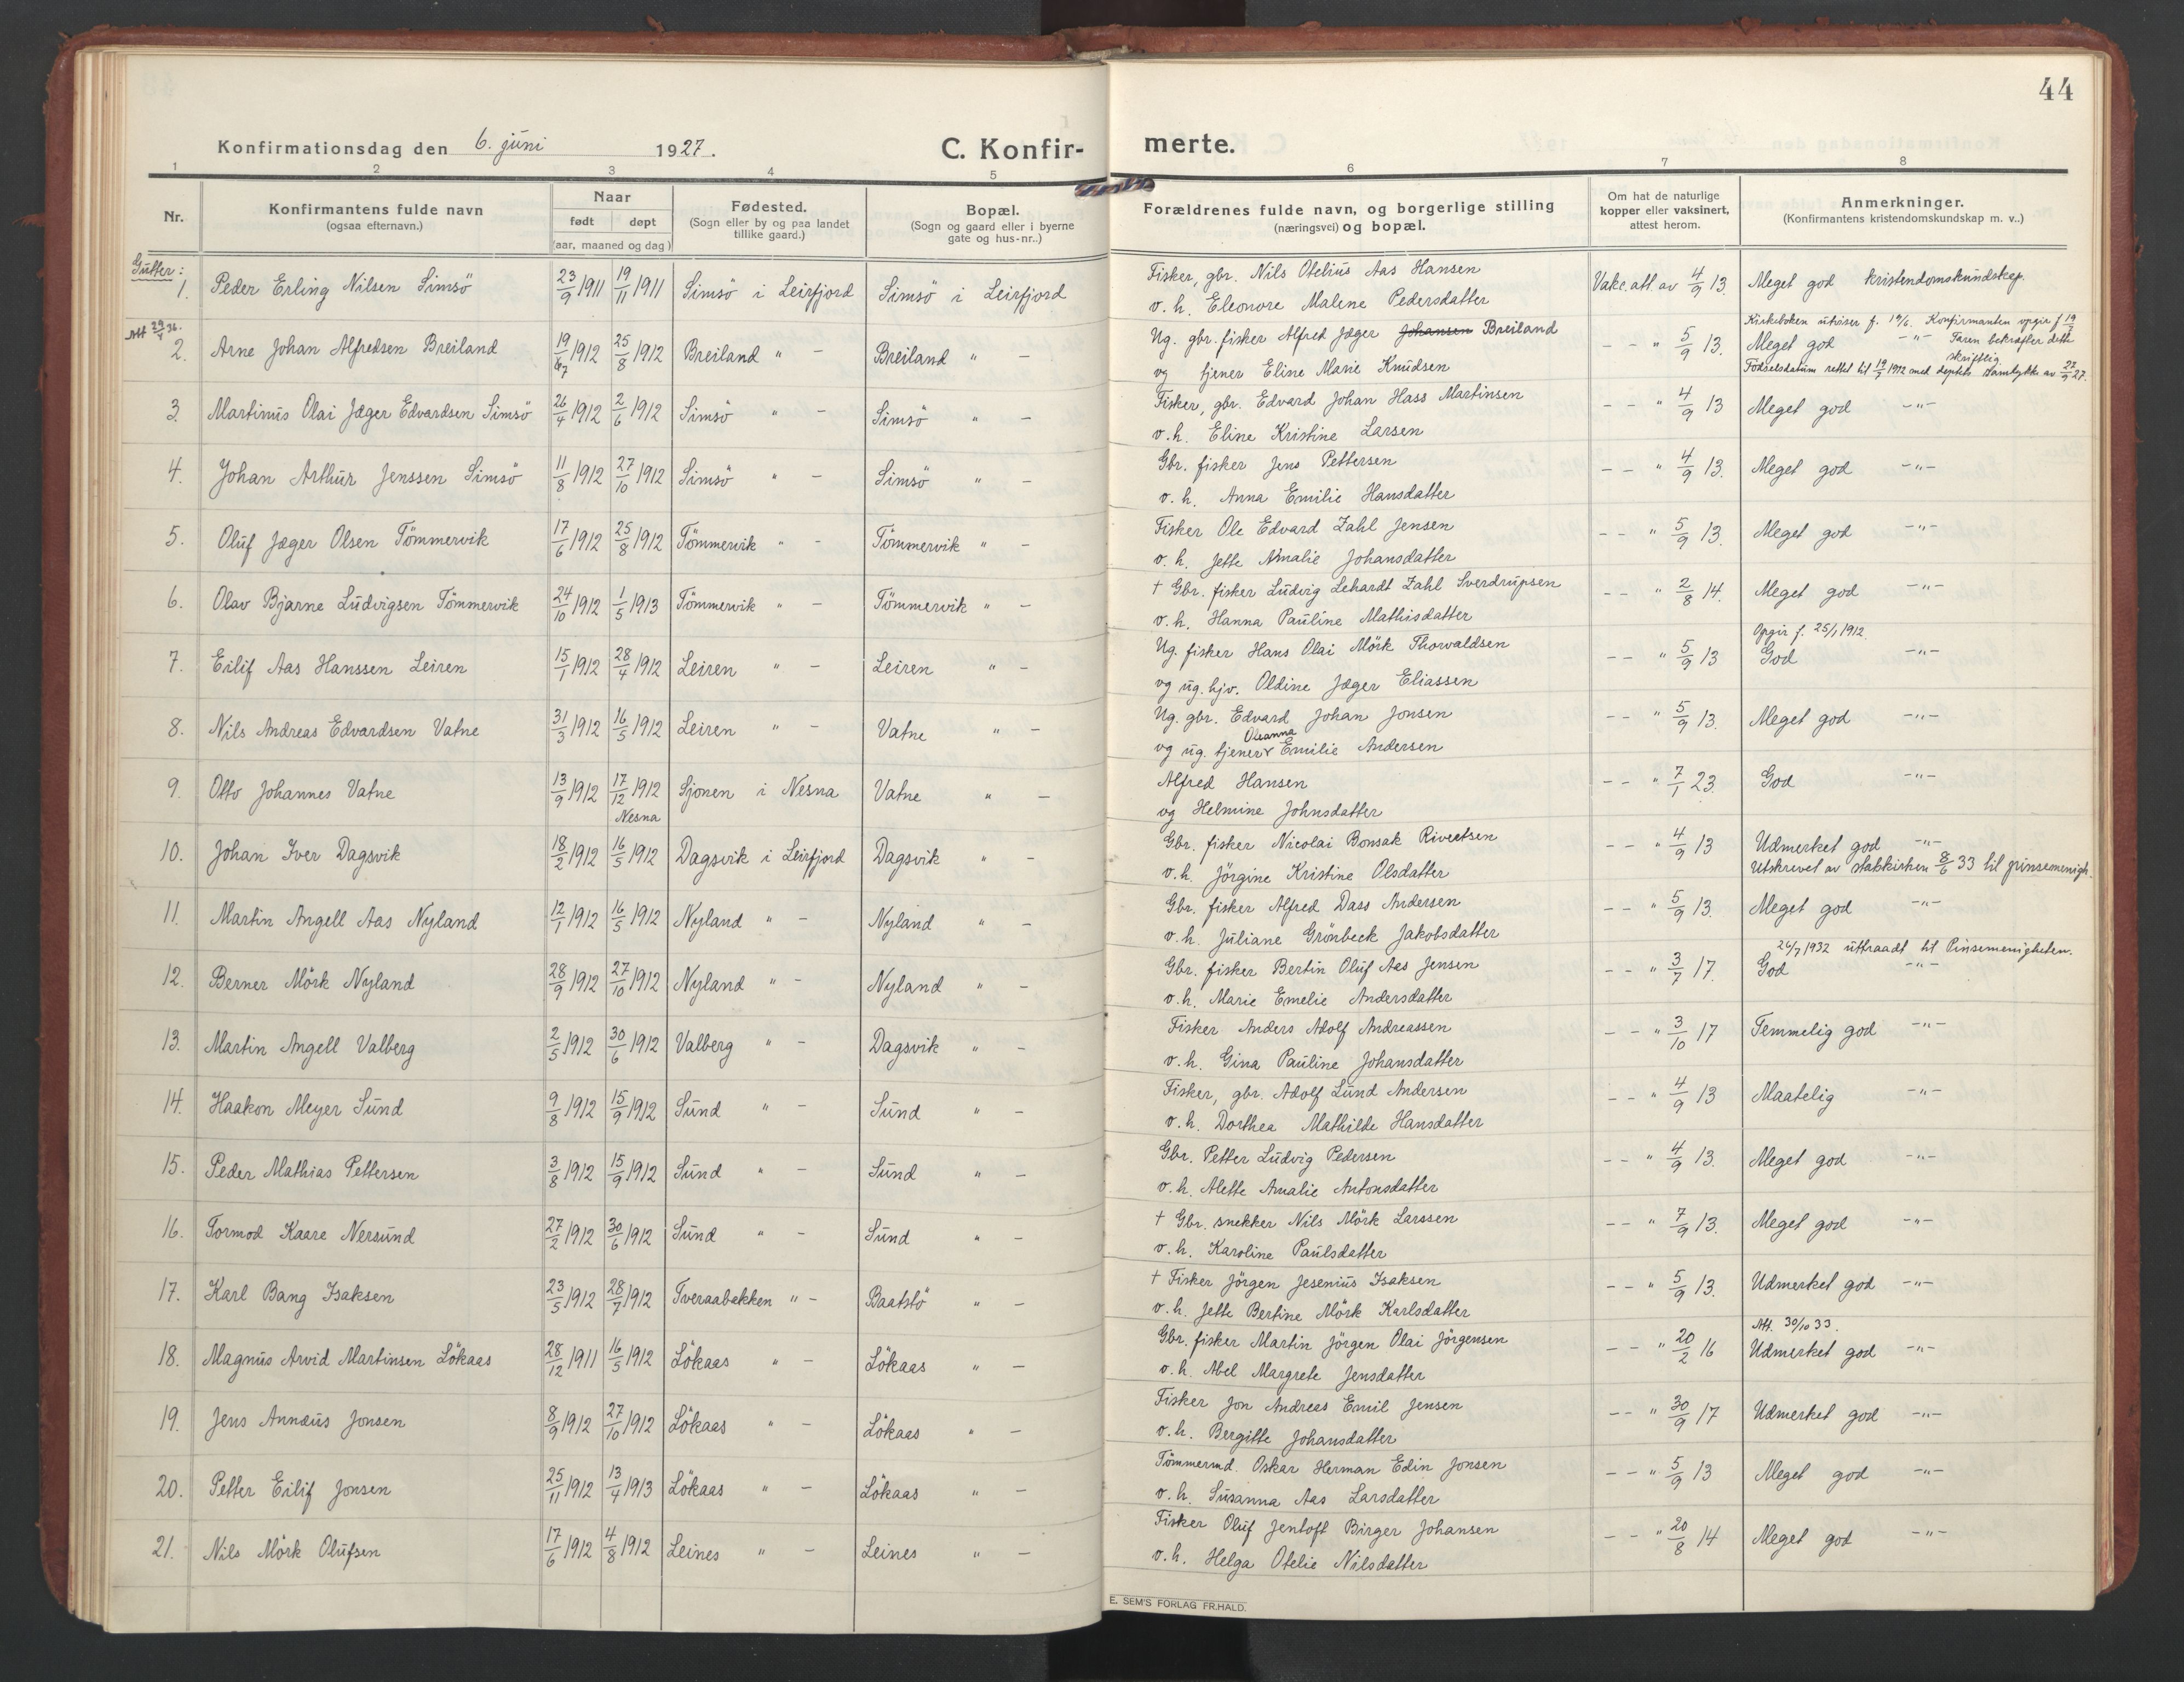 44
Konfirmationsdag den 6. juni 1927.
C. Konfirmerte.
1 2 3 4 5 6 7 8
Nr.
Konfirmantens fulde navn
(ogsaa efternavn.)
Naar
født døpt
(aar, maaned og dag)
Fødested.
(Sogn eller by og paa landet tillike gaard.)
Bopæl.
(Sogn og gaard eller i byerne gate og hus-nr..)
Forældrenes fulde navn, og borgerlige stilling
(næringsvei) og bopæl.
Om hat de naturlige kopper eller vaksinert, attest herom.
Anmerkninger.
(Konfirmantens kristendomskundskap m. v..)
Gutter:
1. Peder Erling Nilsen Simsö 23/9 1911 19/11 1911 Simsö i Leirfjord Simsö i Leirfjord Fisker, gbr. Nils Otelius Aas Hansen Vakc. att. av 4/9 13. Meget god kristendomskundskap.
o. h. Eleonore Malene Pedersdatter
Att 29/4 36.
Kirkeboken utviser f. 19/6. Konfirmanten opgir f 19/7
2. Arne Johan Alfredsen Breiland 19/7 1912 25/8 1912 Breiland " - Breiland " - Ug. gbr. fisker Alfred Jæger Johansen Breiland - - " 5/9 13. Meget god -"- Faren bekræfter dette skriftlig
og tjener Eline Marie Knudsen Födselsdatum rettet til 19/7 1912 med deptets samtykke av 23/9 27.
3. Martinus Olai Jæger Edvardsen Simsö 26/4 1912 2/6 1912 Simsö " - Simsö " - Fisker, gbr. Edvard Johan Hass Martinsen - - " 4/9 13 Meget god -"-
o. h. Eline Kristine Larsen
4. Johan Arthur Jenssen Simsö 11/8 1912 27/10 1912 Simsö " - Simsö " - Gbr. fisker Jens Pettersen - - " 4/9 13. Meget god -"-
o. h. Anna Emilie Hansdatter
5. Oluf Jæger Olsen Tömmervik 17/6 1912 25/8 1912 Tömmervik " - Tömmervik " - Fisker Ole Edvard Zahl Jensen - - " 5/9 13. Meget god -"-
o. h. Jette Amalie Johansdatter
6. Olav Bjarne Ludvigsen Tömmervik 24/10 1912 1/5 1913 Tömmervik " - Tömmervik " - † Gbr. fisker Ludvig Lehardt Zahl Sverdrupsen - - " 2/8 14. Meget god -"-
o. h. Hanna Pauline Mathisdatter
Opgir f. 25/1 1912.
7. Eilif Aas Hanssen Leiren 15/1 1912 28/4 1912 Leiren " - Leiren " - Ug. fisker Hans Olai Mörk Thorvaldsen - - " 5/9 13 God -"-
og ug. hjv. Oldine Jæger Eliassen
8. Nils Andreas Edvardsen Vatne 31/3 1912 16/5 1912 Leiren " - Vatne " - Ug. gbr. Edvard Johan Jonsen - - " 5/9 13. Meget god -"-
og ug. tjener Oleanna Emilie Andersen
9. Otto Johannes Vatne 13/9 1912 17/12 1912 Nesna Sjonen i Nesna Vatne " - Alfred Hansen - - " 7/1 23. God -"-
og Helmine Johnsdatter
10. Johan Iver Dagsvik 18/2 1912 16/5 1912 Dagsvik i Leirfjord Dagsvik " - Gbr. fisker Nicolai Bonsak Rivertsen - - " 4/9 13 Udmerket god -"-
o. h. Jörgine Kristine Olsdatter Utskrevet av statskirken 8/6 33 til pinsemenigh.
11. Martin Angell Aas Nyland 12/1 1912 16/5 1912 Nyland " - Nyland " - Gbr. fisker Alfred Dass Andersen - - " 5/9 13. Meget god -"-
o. h. Juliane Grönbeck Jakobsdatter
26/7 1932 uttraadt til Pinsemenigheten.
12. Berner Mörk Nyland 28/9 1912 27/10 1912 Nyland " - Nyland " - Gbr. fisker Bertin Oluf Aas Jensen - - " 3/7 17. God -"-
o. h. Marie Emelie Andersdatter
13. Martin Angell Valberg 2/5 1912 30/6 1912 Valberg " - Dagsvik " - Fisker Anders Adolf Andreassen - - " 3/10 17 Temmelig god -"-
o. h. Gina Pauline Johansdatter
14. Haakon Meyer Sund 9/8 1912 15/9 1912 Sund " - Sund " - Fisker, gbr. Adolf Lund Andersen - - " 4/9 13 Maatelig -"-
o. h. Dorthea Mathilde Hansdatter
15. Peder Mathias Pettersen 3/8 1912 15/9 1912 Sund " - Sund " - Gbr. Petter Ludvig Pedersen - - " 4/9 13. Meget god -"-
o. h. Alette Amalie Antonsdatter
16. Tormod Kaare Nersund 27/2 1912 30/6 1912 Sund " - Sund " - † Gbr. snekker Nils Mörk Larssen - - " 7/9 13. Meget god -"-
o. h. Karoline Paulsdatter
17. Karl Bang Isaksen 23/5 1912 28/7 1912 Tveraabakken " - Baatstö " - † Fisker Jörgen Jesenius Isaksen - - " 5/9 13. Udmerket god -"-
o. h. Jette Bertine Mörk Karlsdatter
Att. 30/10 33.
18. Magnus Arvid Martinsen Lökaas 28/12 1911 16/5 1912 Lökaas " - Lökaas " - Gbr. fisker Martin Jörgen Olai Jörgensen - - " 20/2 16 Udmerket god -"-
o. h. Abel Margrete Jensdatter
19. Jens Annæus Jonsen 8/9 1912 27/10 1912 Lökaas " - Lökaas " - Fisker Jon Andreas Emil Jensen - - " 30/9 17 Udmerket god -"-
o. h. Bergitte Johansdatter
20. Petter Eilif Jonsen 25/11 1912 13/4 1913 Lökaas " - Lökaas " - Tömmermd. Oskar Herman Edin Jonsen - - " 5/9 13 Meget god -"-
o. h. Susanna Aas Larsdatter
21. Nils Mörk Olufsen 17/6 1912 4/8 1912 Leines " - Leines " - Fisker Oluf Jentoft Birger Johansen - - " 20/8 14 Meget god -"-
o. h. Helga Otelie Nilsdatter
E. SEM'S FORLAG FR.HALD.